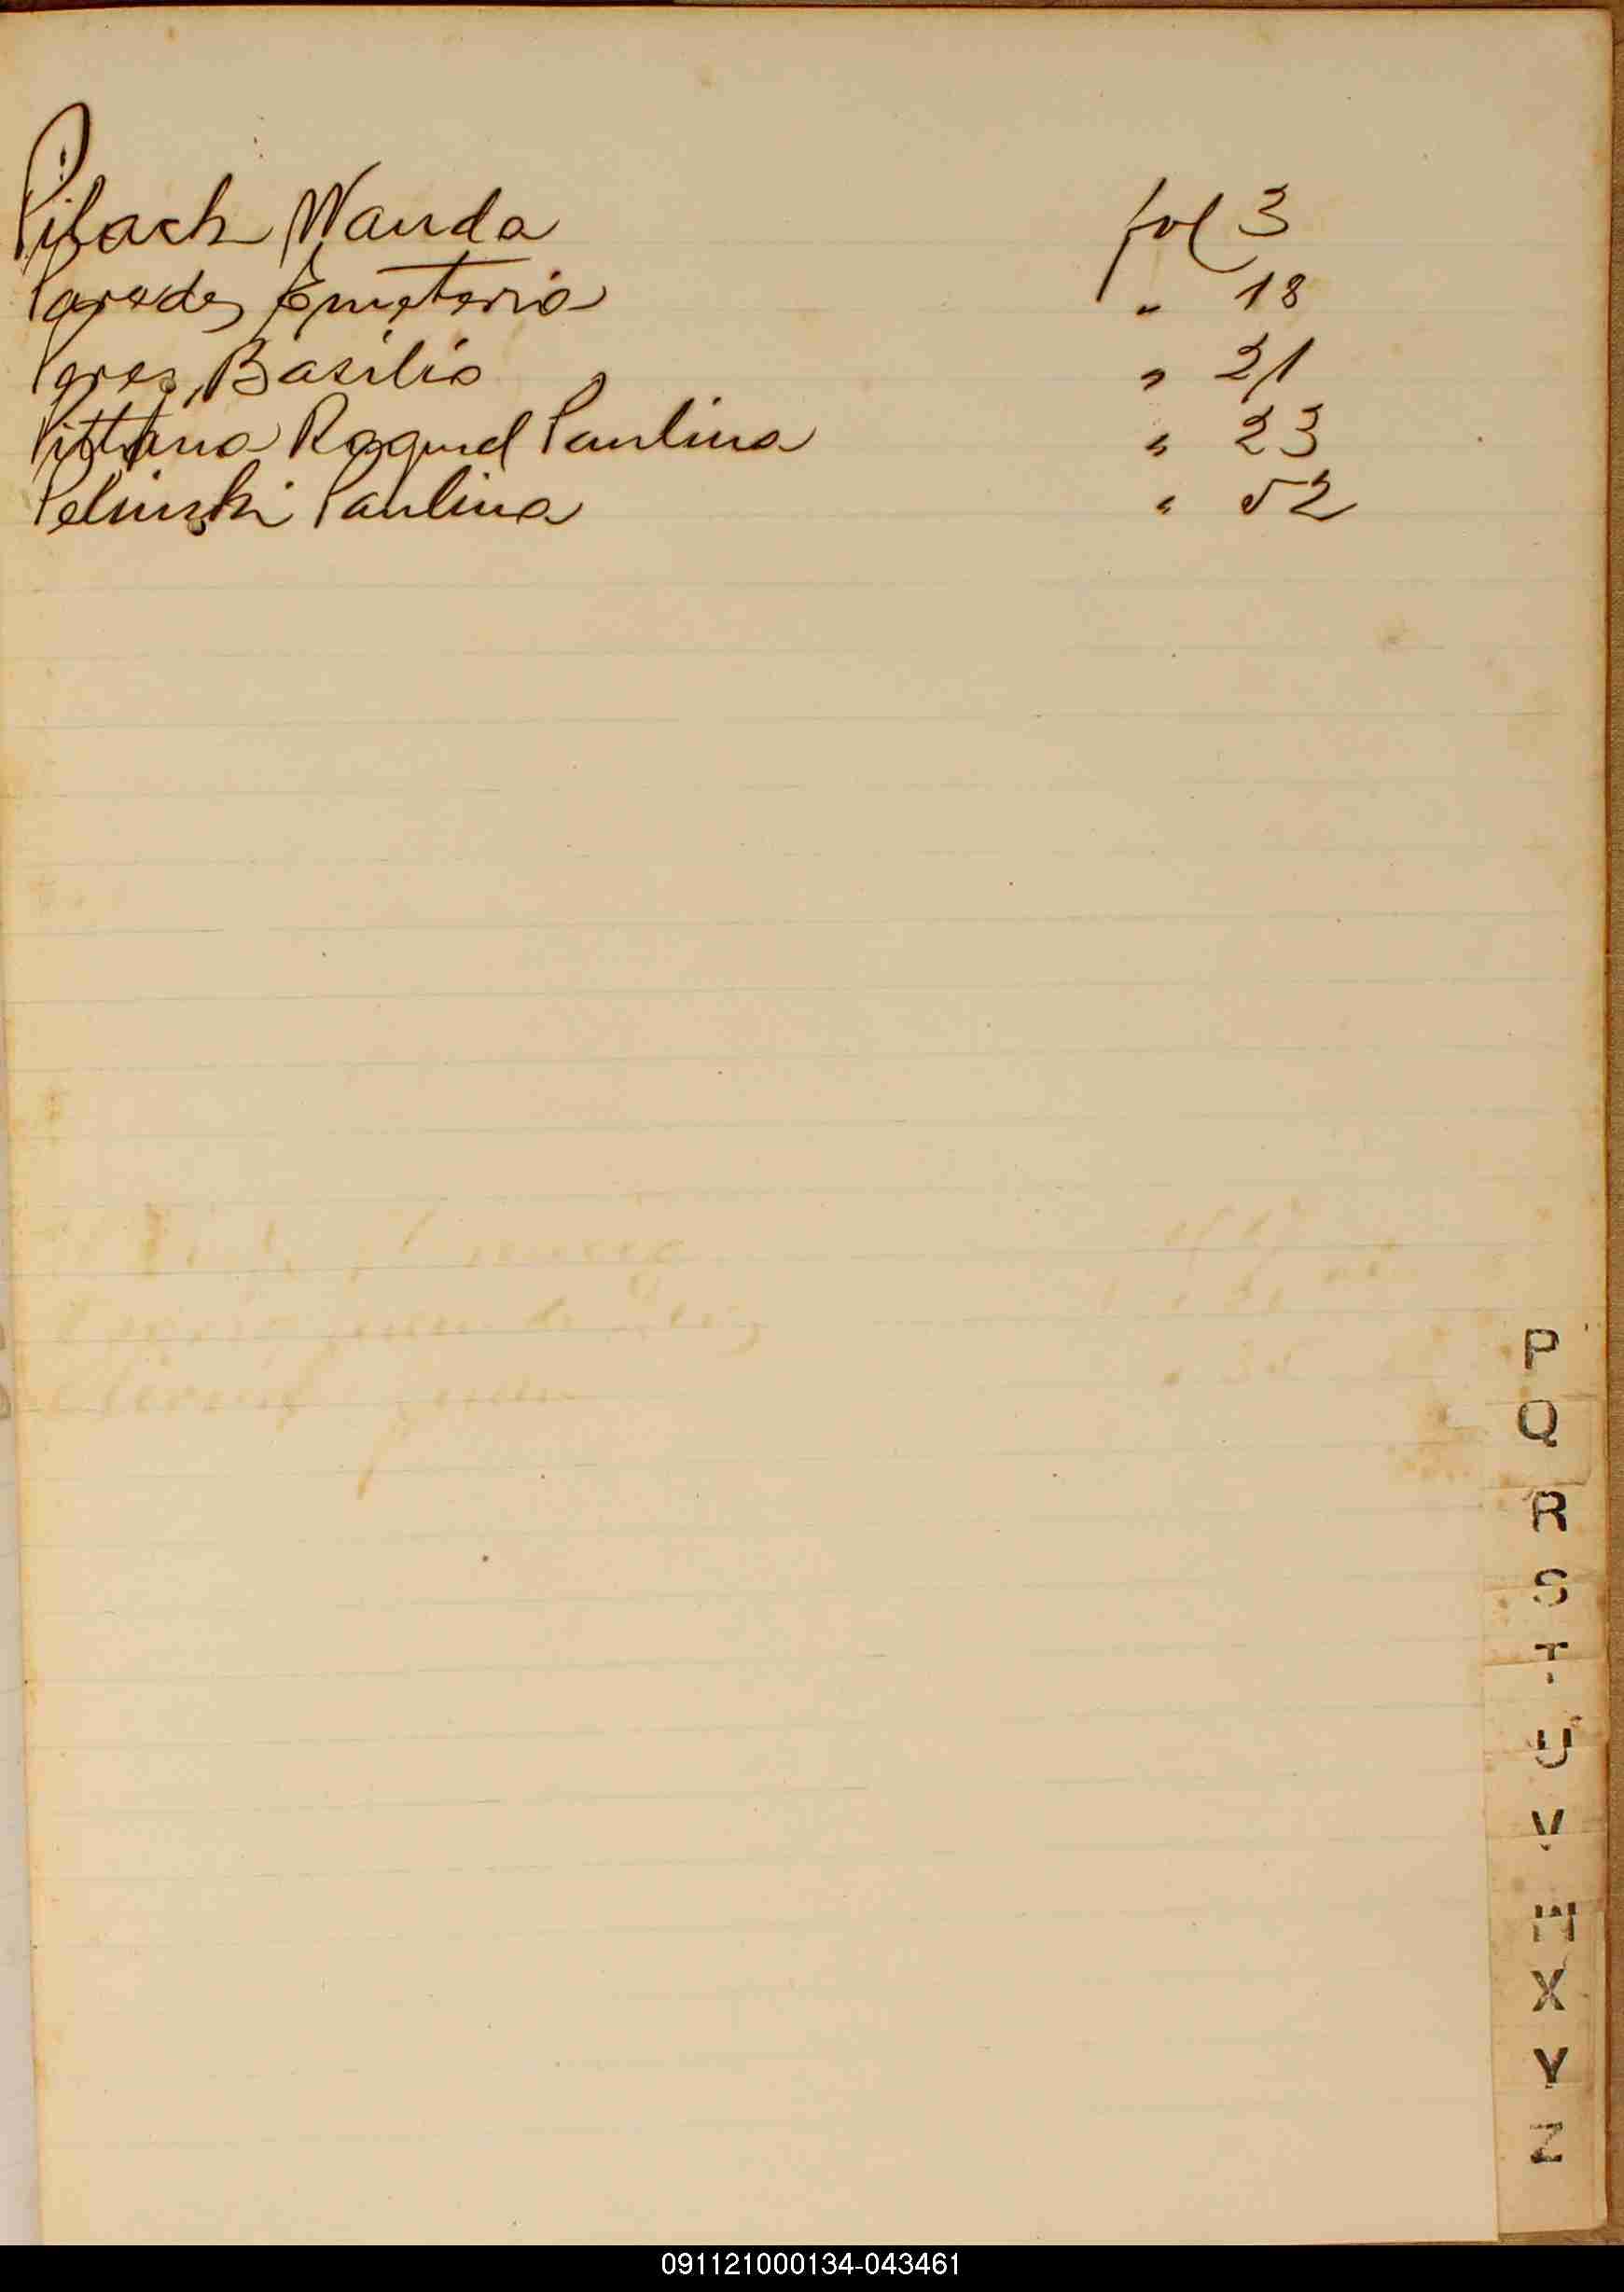 Pibach Wanda fol 3
Paredes Emeteria " 18
Peres, Basilio " 21
Raquel Paulina " 23
Pelinski Paulina " 52
P
Q
R
S
T
U
V
W
X
Y
Z
091121000134-043461